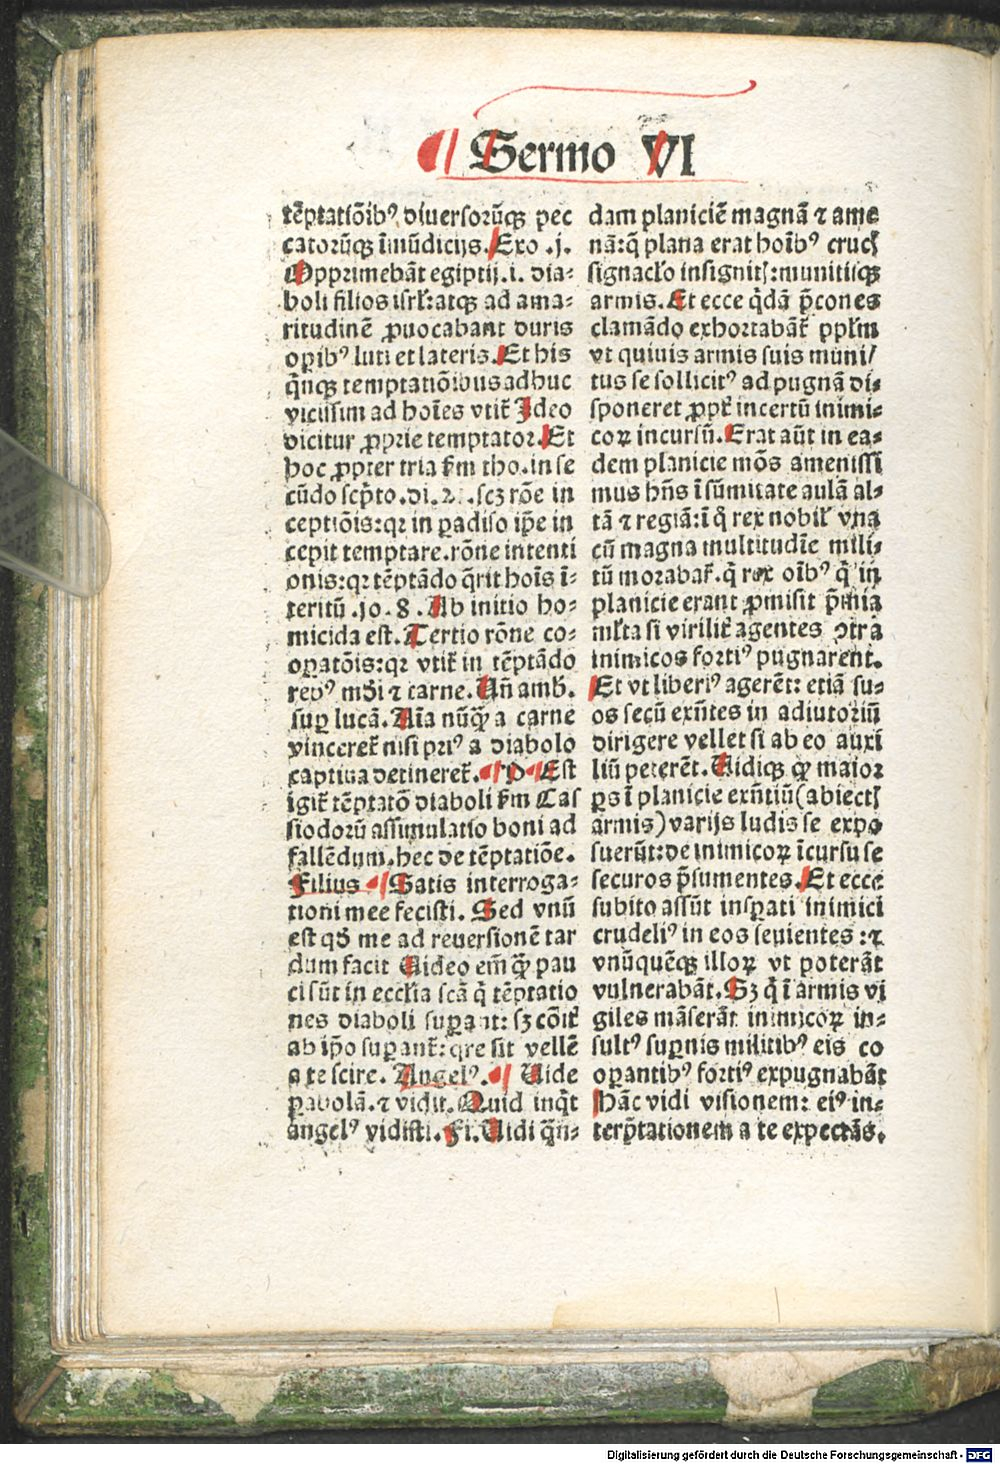 Sermo VI
tẽptatiõibꝰ diuersorũqꝫ pec
catorũqꝫ ĩmũdicijs. Exo .j.
Opprimebãt egiptij .i. dia⸗
boli filios isrl̃: atqꝫ ad ama⸗
ritudinẽ ꝓuocabant duris
oꝑibꝰ luti et lateris. Et his
q̃nqꝫ temptatiõibus adhuc
vicissim ad hoĩes vtit̃ Ideo
dicitur ꝓprie temptator. Et
hoc ꝓpter tria ẜm tho. in se
cũdo scp̃to .di. 21. scꝫ rõe in
ceptiõis: qꝛ in ꝑadiso ip̃e in
cepit temptare. rõne intenti
onis: qꝛ tẽptãdo q̃rit hoĩs ĩ⸗
teritũ .jo. 8. Ab initio ho⸗
micida est. Tertio rõne co⸗
oꝑatõis: qꝛ vtit̃ in tẽptãdo
rebꝰ mũdi ⁊ carne. Uñ amb̃.
suꝑ lucã. Aĩa nũq̃ꝫ a carne
vinceret̃ nisi priꝰ a diabolo
captiua detineret̃. D Est
igit̃ tẽptatõ diaboli ẜm Cas
siodorũ assimulatio boni ad
fallẽdum. hec de tẽptatiõe.
Filius Satis interroga⸗
tioni mee fecisti. Sed vnũ
est qđ me ad reuersionẽ tar
dum facit Uideo em̃ q̃ꝫ pau
ci sũt in eccl̃ia scã q̃ tẽptatio
nes diaboli suꝑant: sꝫ cõit̃
ab ip̃o suꝑant̃: q̃re sit vellẽ
a te scire. Angelꝰ. Uide
ꝑabolã. ⁊ vidit. Quid inq̃t
angelꝰ vidisti. Fi. Uidi q̃n⸗
dam planiciẽ magnã ⁊ ame
nã: q̃ plana erat hoĩbꝰ crucꝭ
signacl̃o insignitꝭ: munitisqꝫ
armis. Et ecce q̃dã p̃cones
clamãdo exhortabãt̃ ppl̃m
vt quiuis armis suis muni/
tus se sollicitꝰ ad pugnã di⸗
sponeret ꝓpt̃ incertũ inimi⸗
coꝝ incursũ. Erat aũt in ea⸗
dem planicie mõs amenissi
mus hñs ĩ sũmitate aulã al⸗
tã ⁊ regiã: ĩ q̃ rex nobil̃ vna
cũ magna multitudĩe mili⸗
tũ morabat̃. q̃ rex oĩbꝰ q̃ in
planicie erant ꝓmisit p̃mia
ml̃ta si virilit̃ agentes ↄtra
inimicos fortiꝰ pugnarent.
Et vt liberiꝰ agerẽt: etiã su⸗
os secũ exñtes in adiutoriũ
dirigere vellet si ab eo auxi
liũ peterẽt. Uidiqꝫ q̃ꝫ maior
ꝑs ĩ planicie exñtiũ (abiectꝭ
armis) varijs ludis se expo
suerũt: de inimicoꝝ ĩcursu se
securos p̃sumentes. Et ecce
subito assũt insꝑati inimici
crudeliꝰ in eos seuientes : ⁊
vnũquẽqꝫ illoꝝ vt poterãt
vulnerabãt. Sꝫ q̃ ĩ armis vi
giles mãserãt inimicoꝝ in⸗
sultꝰ suꝑnis militibꝰ eis co
oꝑantibꝰ fortiꝰ expugnabãt
Hãc vidi visionem: eiꝰ in⸗
terp̃tationem a te expectãs.
Digitalisierung gefördert durch die Deutsche Forschungsgemeinschaft - DFG